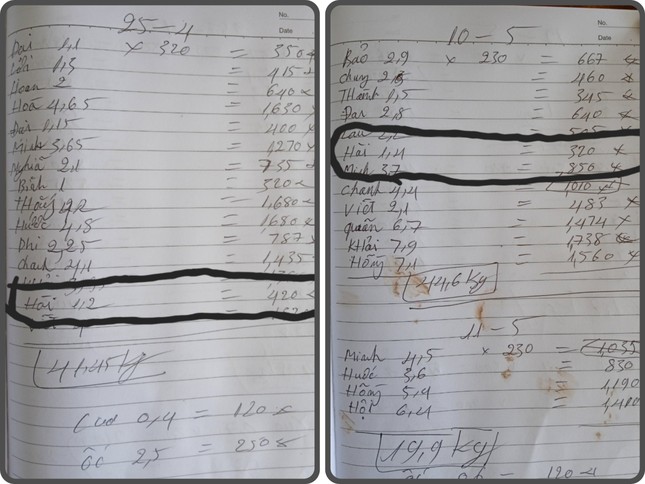 No.
Date
25-4
Đại 1,1 x 320 = 350
Lới 1,3 = 415 x
Hoan 2 = 640 x
Hoà 4,65 = 1,630 x
Đạt 1,15 = 400 x
Minh 3,65 = 1270 x
Nghĩa 2,1 = 735 x
Bình 1 = 320 x
= 1,680 x
Hước 4,8 = 1680 x
Phi 2,25 = 787 x
Chanh 4,1 = 1,435 x
Hải 1,2 = 420 x
41,45 kg
Cua 0,4 = 120 x
ốc 2,5 = 250 x
No.
Date
10-5
Bảo 2,9 x 230 = 667 x
= 460 x
Thanh 1,5 = 345 x
Đạt 2,8 = 640 x
Hải 1,4 = 320 x
Minh 3,7 = 850 x
Chanh 4,4 = 1,010 x
Việt 2,1 = 483 x
quân 6,7 = 1,474 x
Khải 7,9 = 1,738 x
Hồng 7,1 = 1,560 x
44,6 kg
11-5
Minh 4,5 x 230 = 1,035
Hước 3,6 = 830
Hồng 5,4 = 1,190
Hội 6,4 =
19,9 kg
120